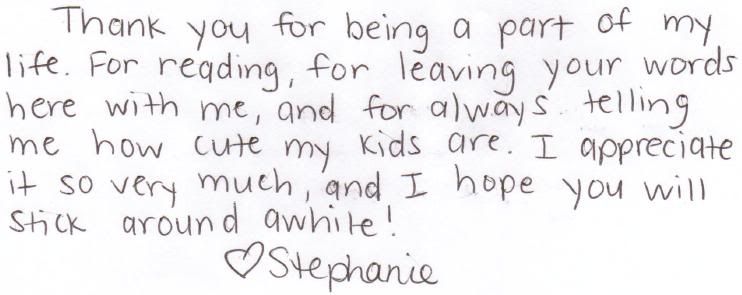 Thank you for being a part of my
life. For reading, for leaving your words
here with me, and for always telling
me how cute my kids are. I appreciate
it so very much, and I hope you will
stick around awhile!
♡Stephanie